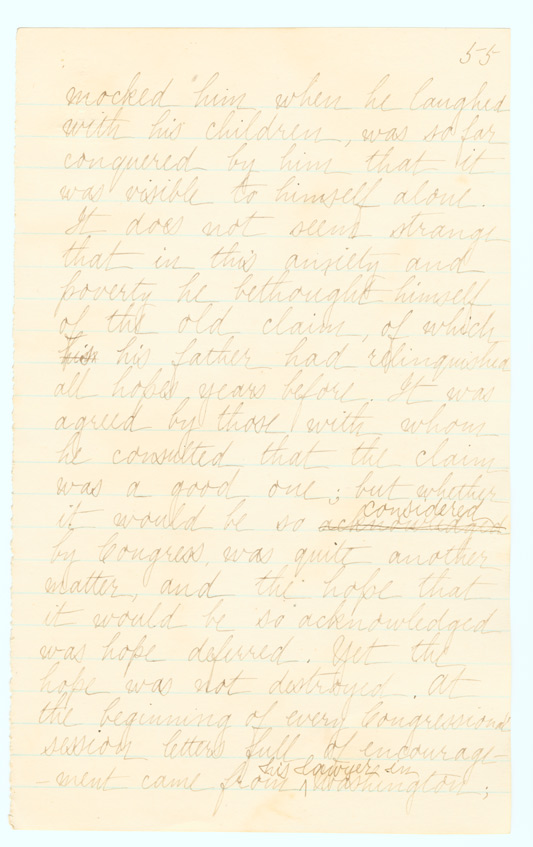 55
mocked "him when he laughed
with his children, was so far
conquered by him that it
was visible to himself alone.
It does not seem strange
that in this anxiety and
poverty he bethought himself
of the old claim, of which
his his father had relinquished
all hopes years before. It was
agreed by those with whom
he consulted that the claim
was a good one; but whether
considered
it would be so acknowledged
by Congress, was quite another
matter, and the hope that
it would be so acknowledged
was hope deferred. Yet the
hope was not destroyed. At
the beginning of every Congressional
session letters full of encourage-
his lawyer in
-ment came from ^ Washington;